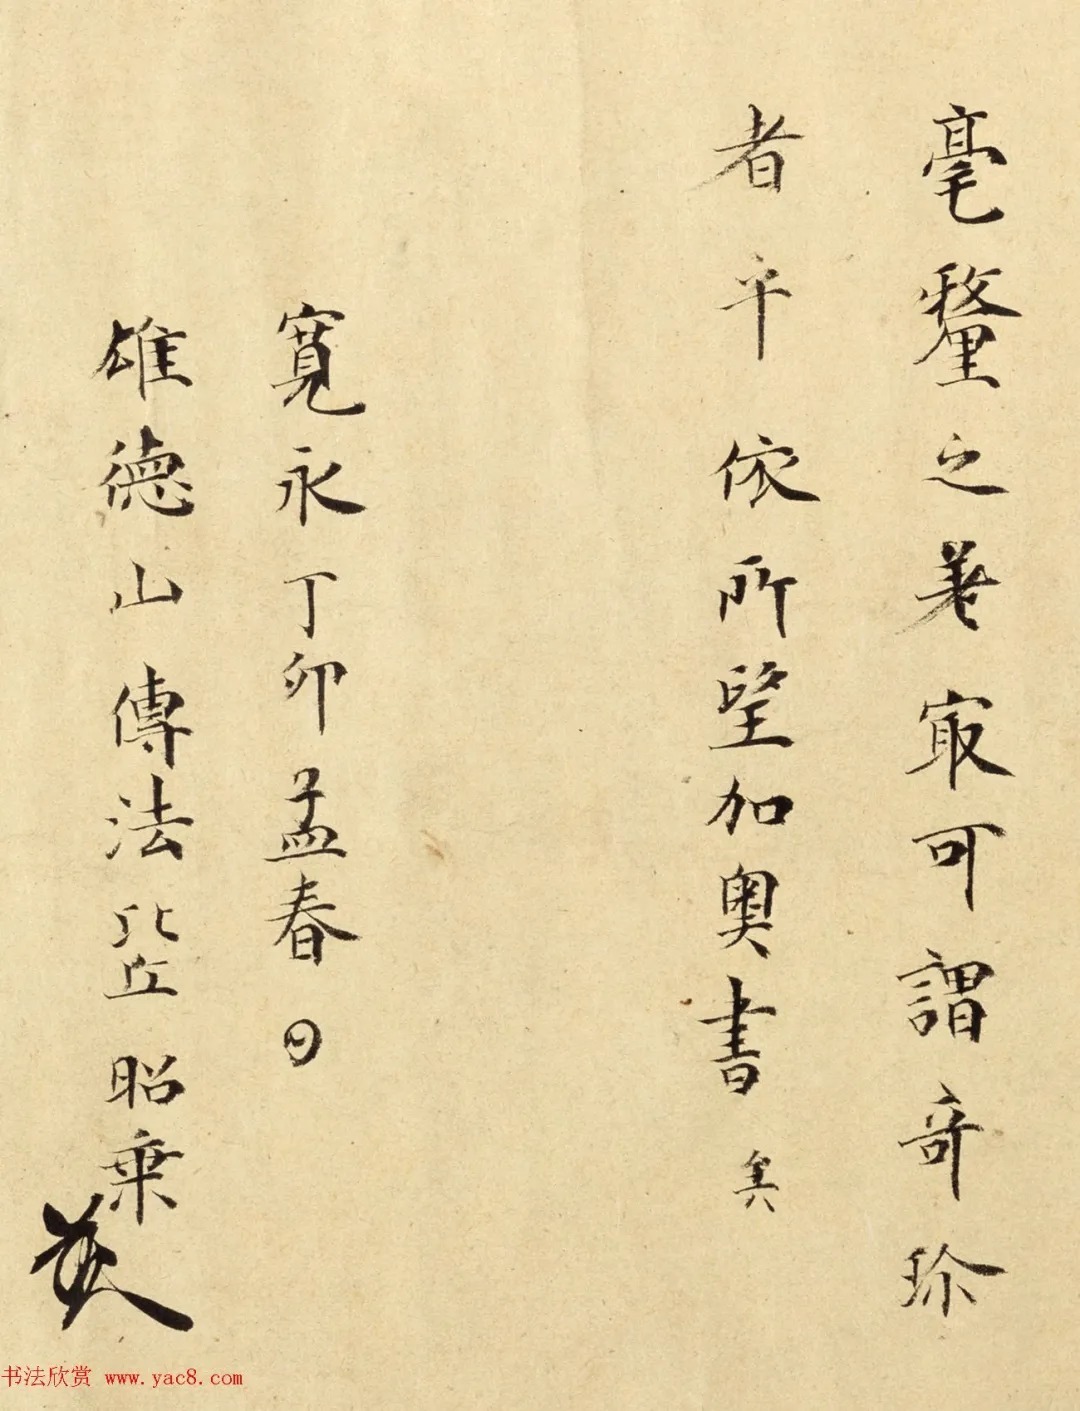 毫釐之差寂可謂奇珎
者乎依所望加奥書矣
寛永丁卯孟春日
雄德山傳法比丘昭乗
书法欣赏 www.yac8.com